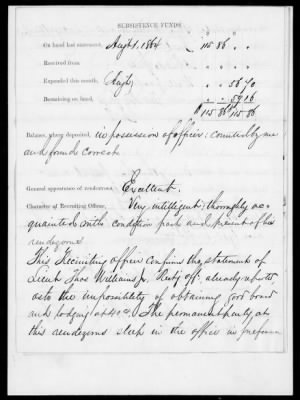 SUBSISTENCE FUNDS
On hand last statement, Aug 1. 1864 " 115 86 " "
Received from
Expended this month, (Aug) " " 56 70
Remaining on hand, " " 59 16
$ 115 86 $ 115 86
Balance, where deposited, in possession of officer: counted by me
and found correct.
General appearance of rendezvous, Excellent.
Character of Recruiting Officer, Very intelligent; thoroughly ac-
quainted with condition past and present of his
rendezvous
This Recruiting officer confirms the statement of
Lieut Thos Williams Jr. Rectg off: already
as to the impossibility of obtaining good board
and lodging at 40 cts. The permanent party at
this rendezvous sleep in the office in